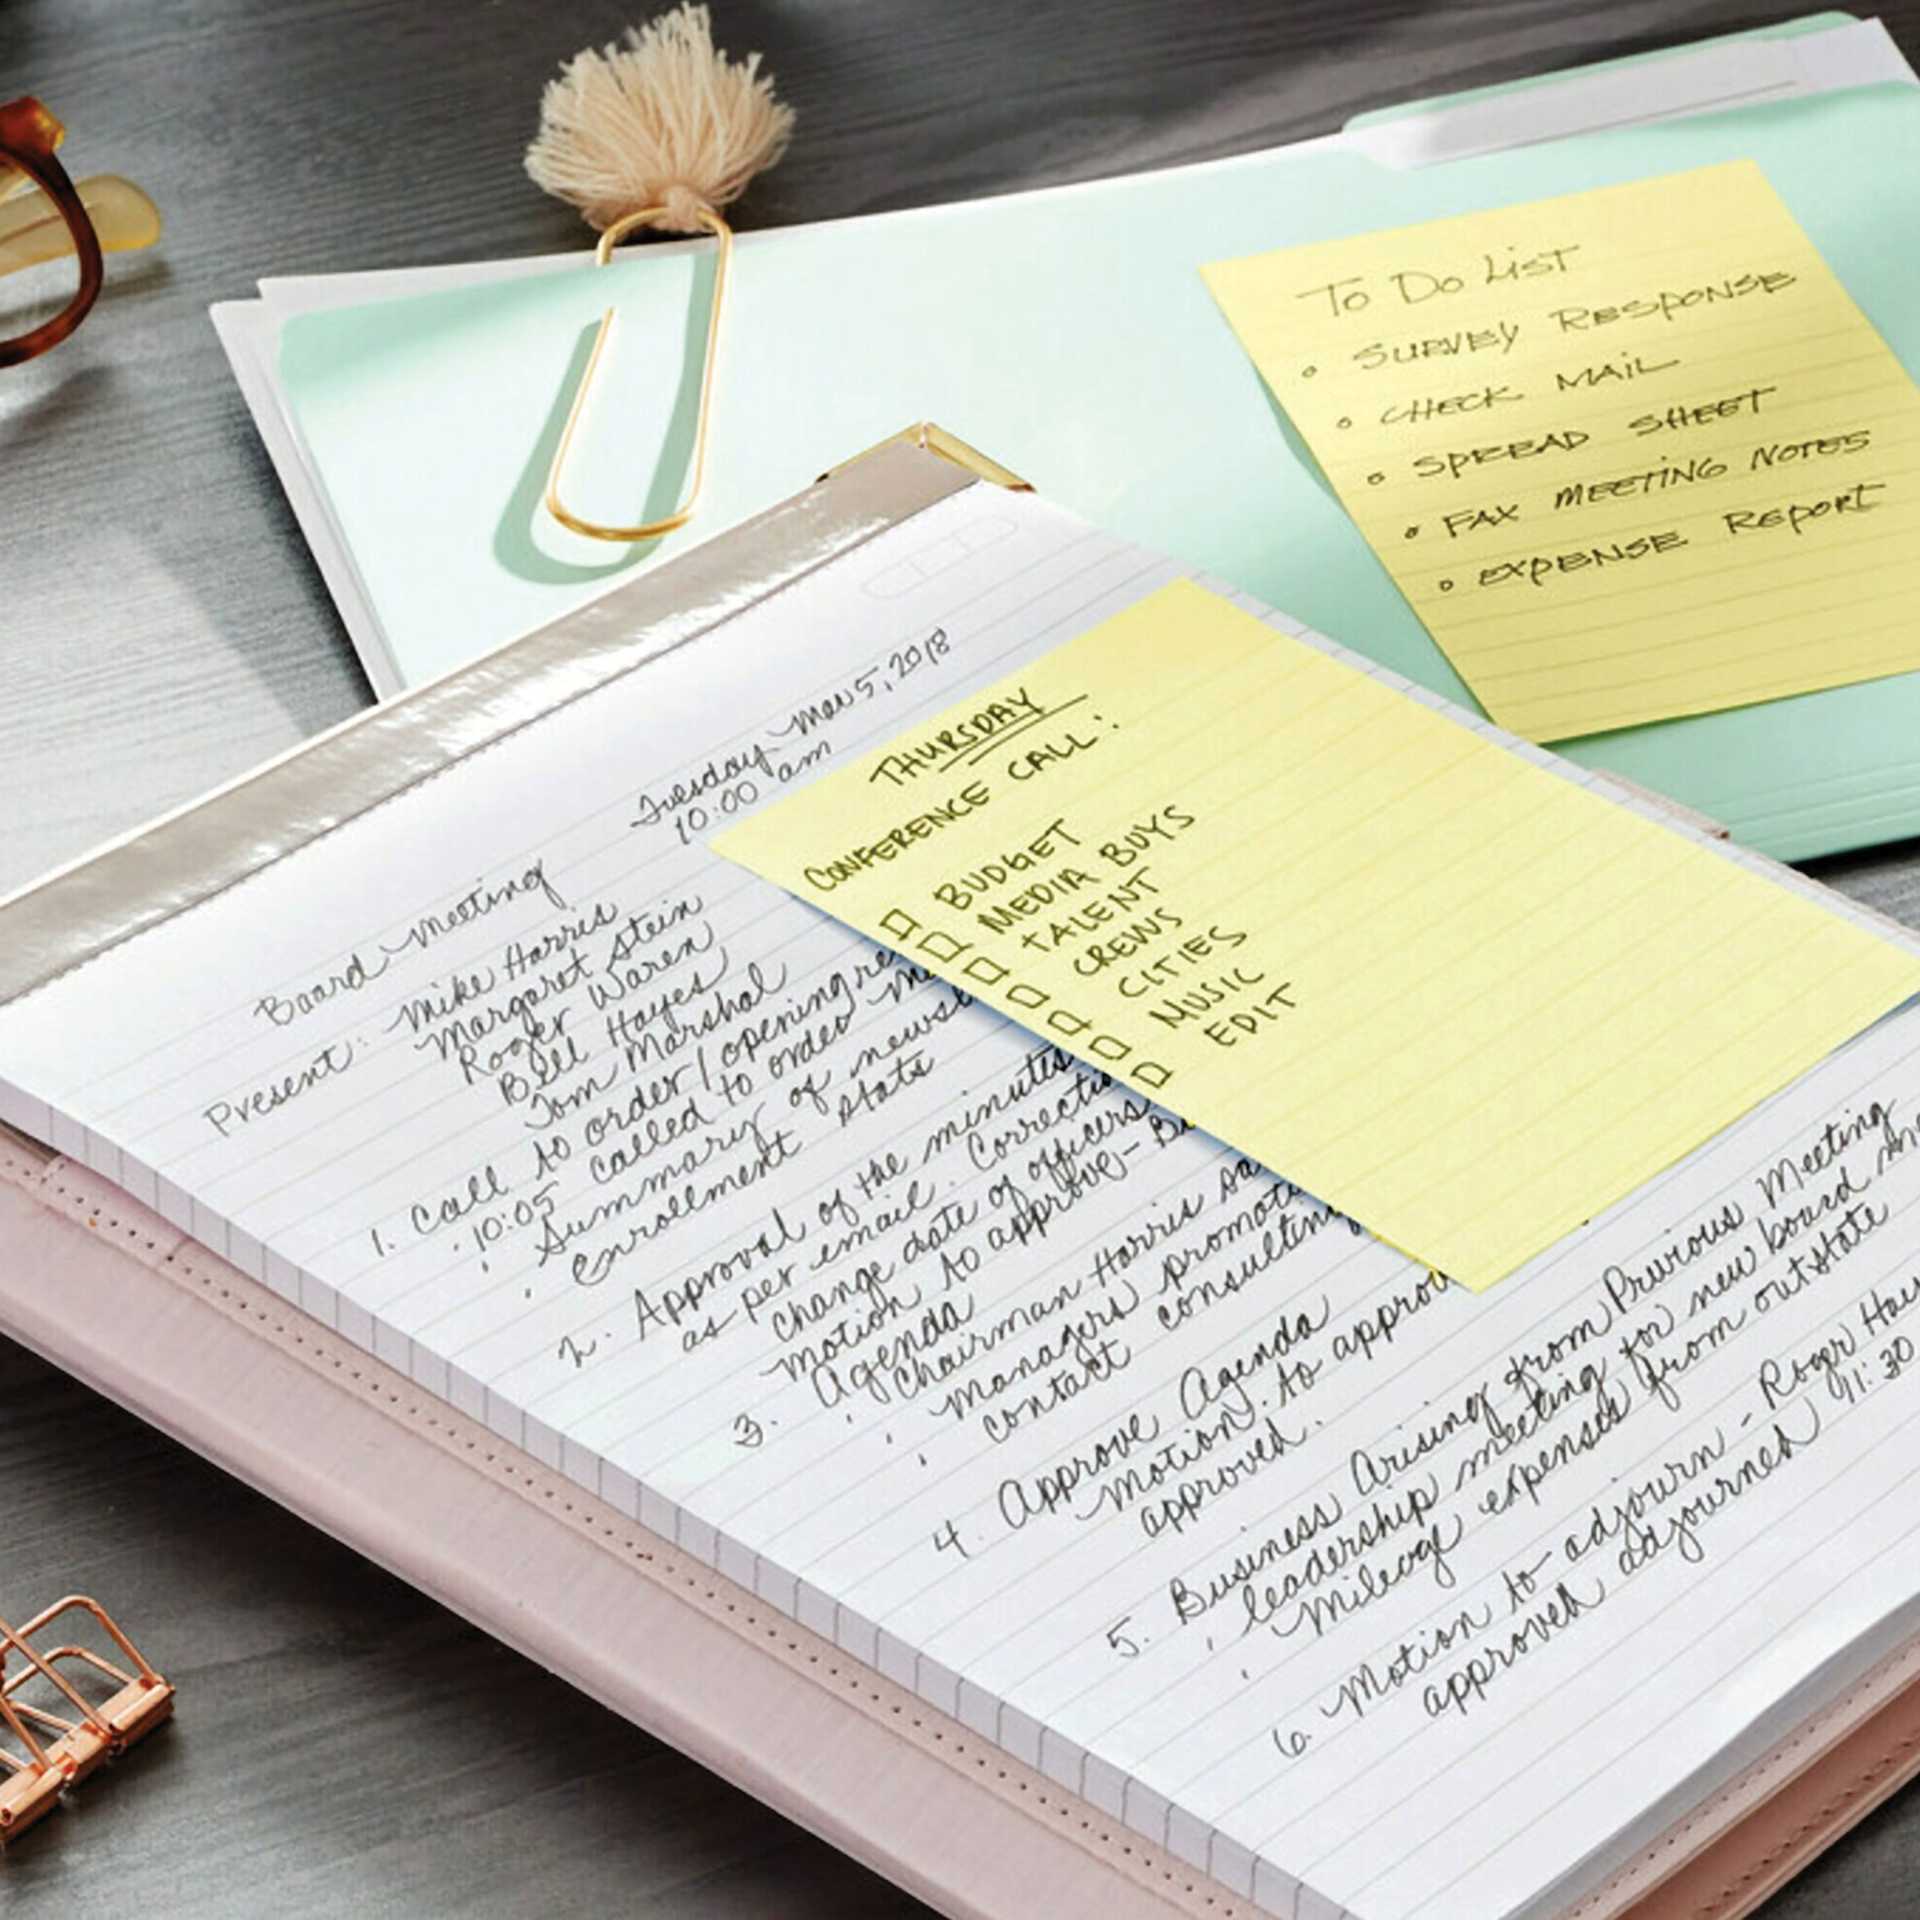 To Do List
• SURVEY RESPONSE
• CHECK MAIL
• SPREAD SHEET
• FAX MEETING NOTES
• EXPENSE REPORT
THURSDAY
CONFERENCE CALL:
☐ BUDGET
☐ MEDIA BUYS
☐ TALENT
☐ CREWS
☐ CITIES
☐ MUSIC
☐ EDIT
Tuesday Mar 5, 2018
10:00 am
Board Meeting
Present: Mike Harris
Margaret Stein
Roger Waren
Bill Hayes
Tom Marshal
1. Call to order/opening re
· 10:05 called to order
· Summary of
· enrollment stats
2. Approval of the minutes
as per email. Correctio
change date of officers
motion to approve -
3. Agenda
· Chairman Harris
· Managers promot
· contact consulting
4. Approve Agenda
Motion to approv
approved.
5. Business Arising from Previous Meeting
· leadership meeting for new board
· Mileage expenses from outstate
6. Motion to adjourn - Roger
approved adjourned 11:30